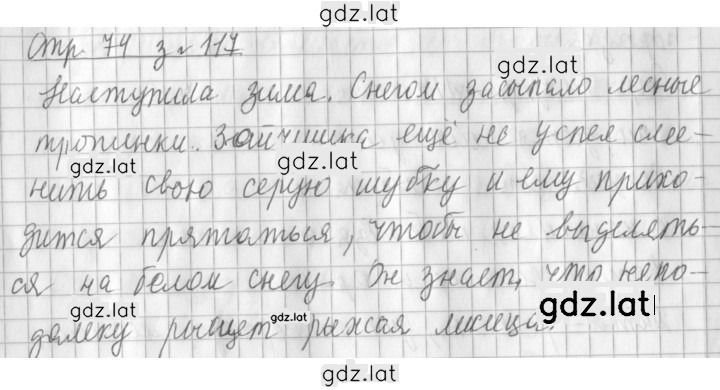 gdz.lat
Стр. 74 з № 117
gdz.lat
Наступила зима. Снегом засыпало лесные
тропинки. Зайчишка ещё не успел сме-
gdz.lat gdz.lat
нить свою серую шубку и ему прихо-
дится прятаться, чтобы не выделять-
gdz.lat
ся на белом снегу. Он знает, что непо-
gdz.lat gdz.lat
далеку рыщет рыжая лисица.
gdz.lat
gdz.lat